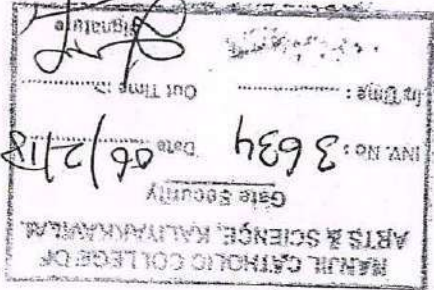 NANJIL CATHOLIC COLLEGE OF
ARTS & SCIENCE, KALIYAKKAVILAI.
Gate Security
INV. No : 3634 Date 06/2/18
In Time : Out Time :
Signature